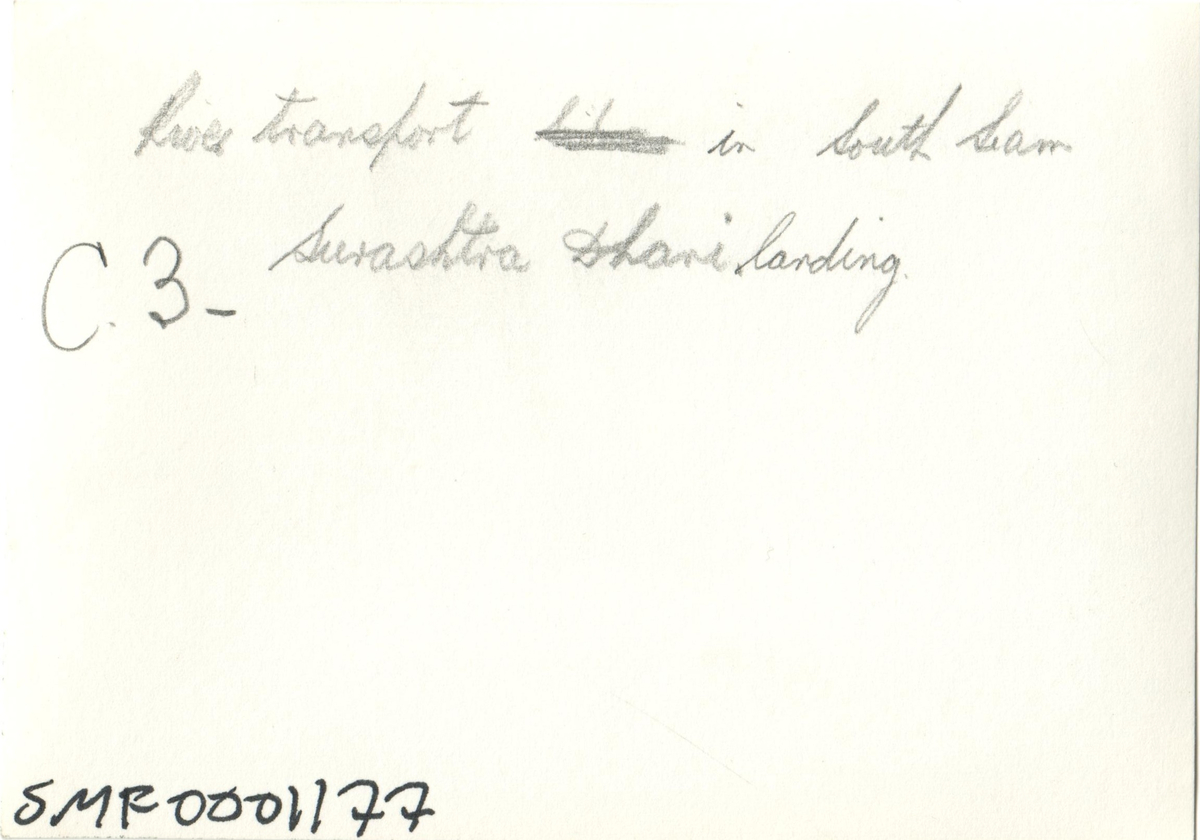 River transport in South Siam
Surashtra Dhani landing.
C. 3-
SMF0001177